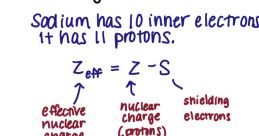 Sodium has 10 inner electrons
it has 11 protons.
Zeff = Z - S
effective
nuclear
charge
nuclear
charge
(protons)
shielding
electrons